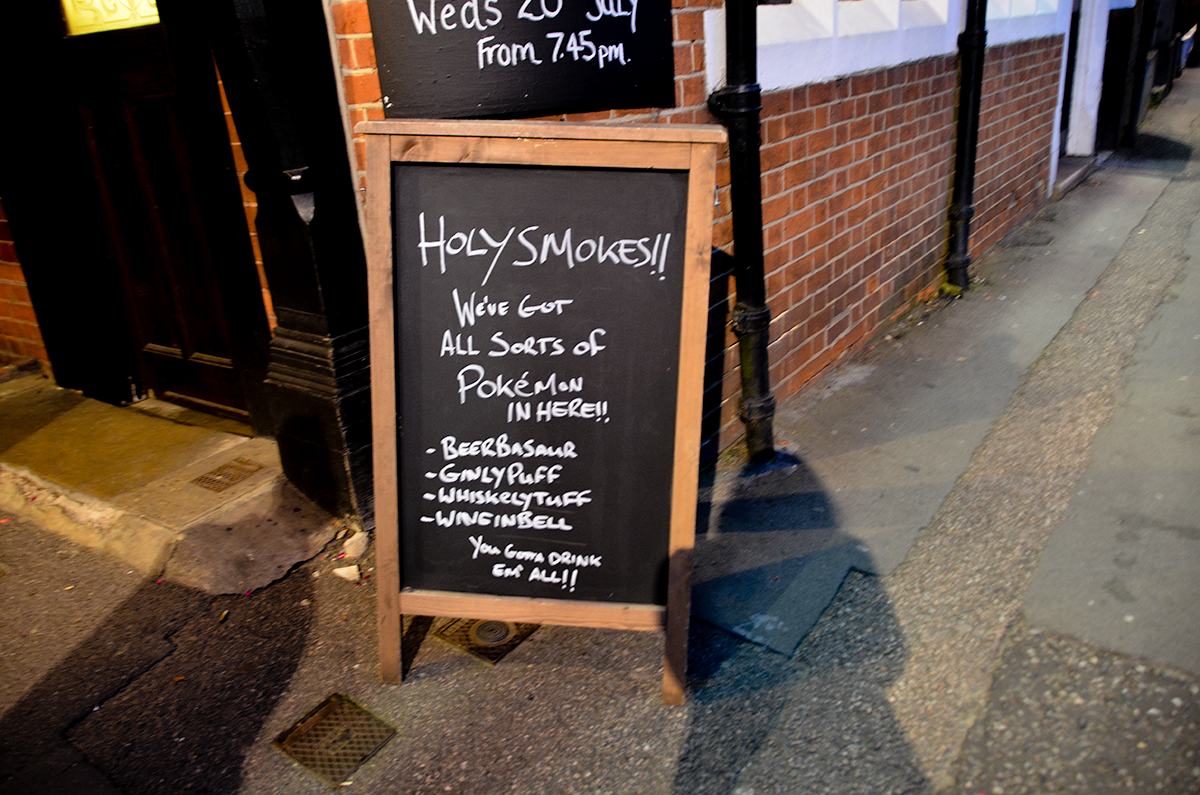 Weds 20 July
From 7.45pm.
HOLY SMOKES!!
WE'VE GOT
ALL SORTS OF
POKéMON
IN HERE!!
- BEERBASAUR
- GINLYPUFF
- WHISKELYTUFF
- WINEINBELL
YOU GOTTA DRINK
EM' ALL!!